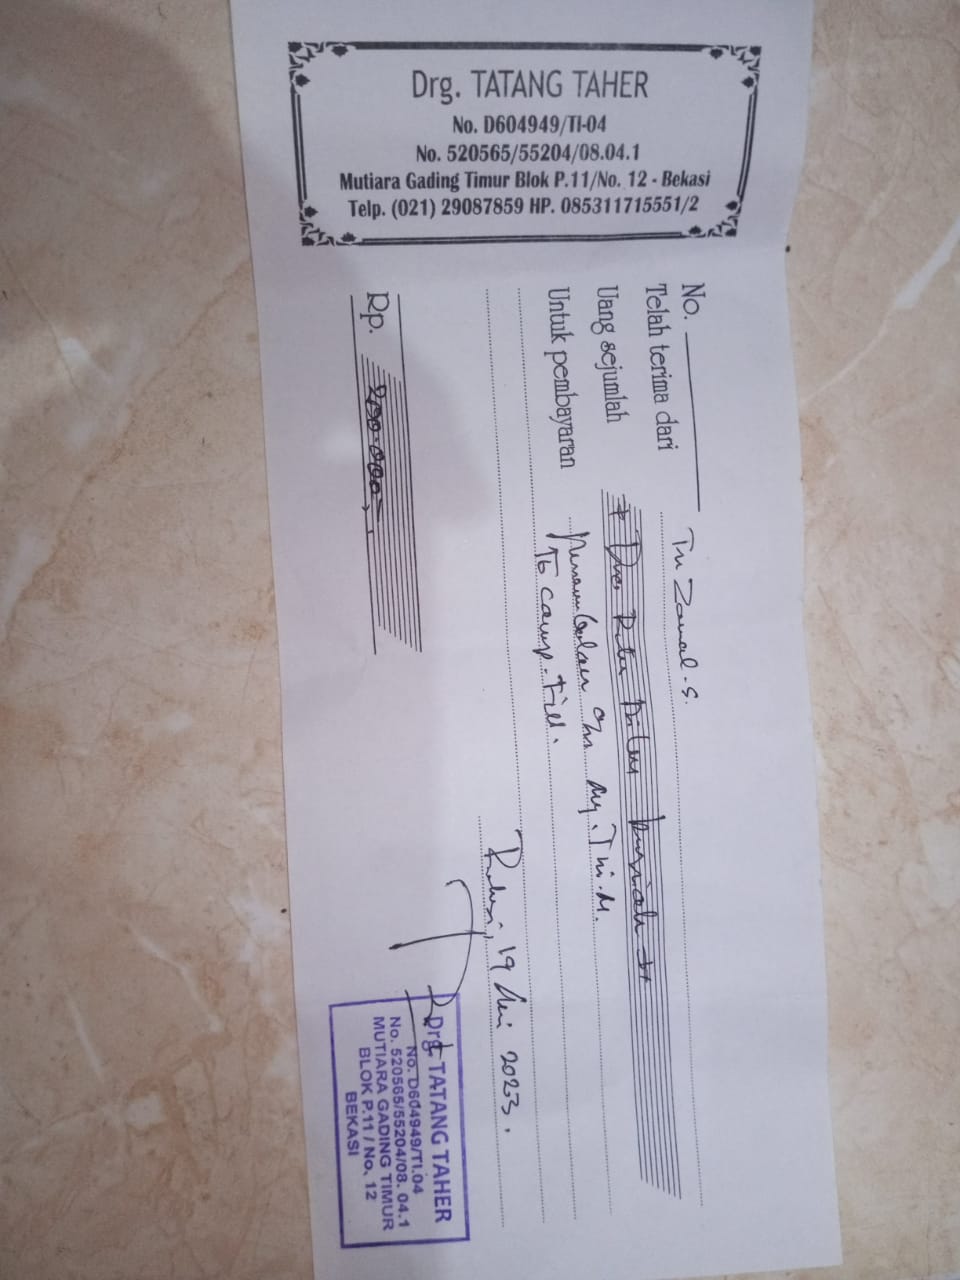 Drg. TATANG TAHER
No. D604949/TI-04
No. 520565/55204/08.04.1
Mutiara Gading Timur Blok P.11/No. 12 - Bekasi
Telp. (021) 29087859 HP. 085311715551/2
No.
Telah terima dari Tn Zainal. S.
Uang sejumlah # Dua Ratus Ribu Rupiah #
Untuk pembayaran Perawatan an Ny. Tri. M.
Comp. Fill.
19 2023.
Rp. 200.000,-
Drg. TATANG TAHER
No. D604949/TI.04
No. 520565/55204/08. 04.1
MUTIARA GADING TIMUR
BLOK P.11 / No. 12
BEKASI